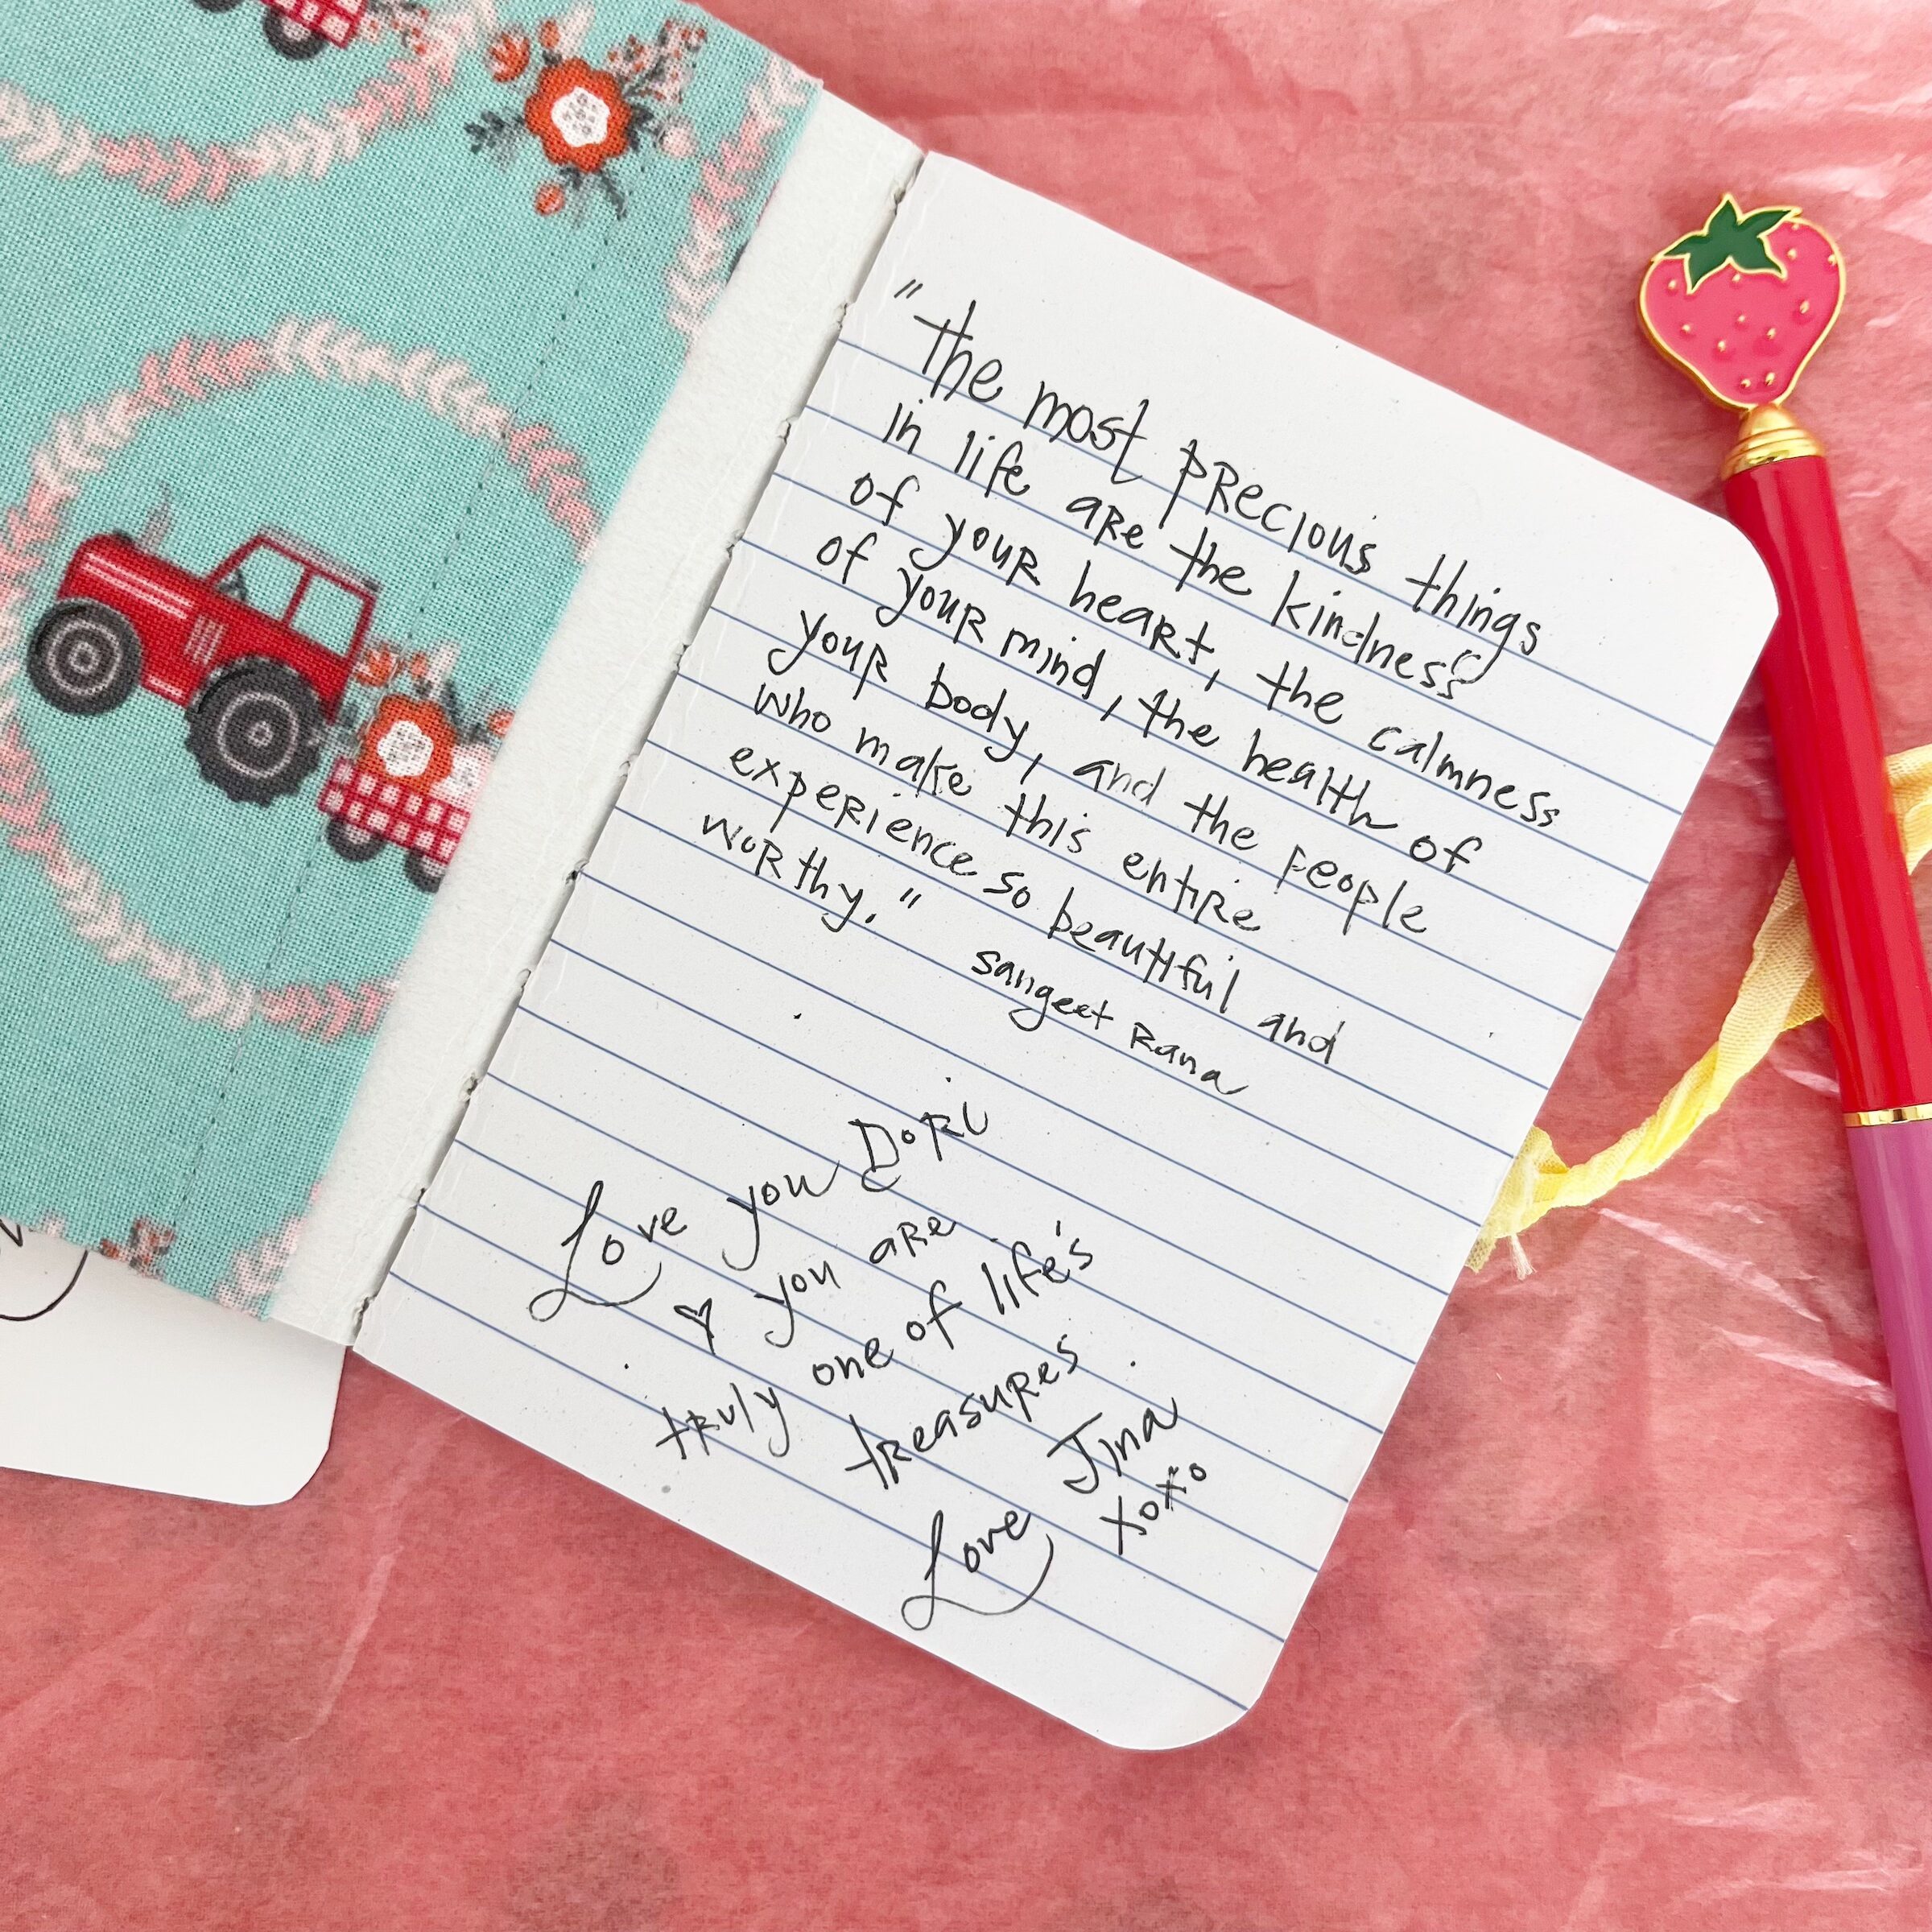 "the most precious things
in life are the kindness
of your heart, the calmness
of your mind, the health of
your body, and the people
who make this entire
experience so beautiful and
worthy."
Sangeet Rana
Love you Dori
♡ you are
truly one of life's
treasures
Love Jina
xoxo